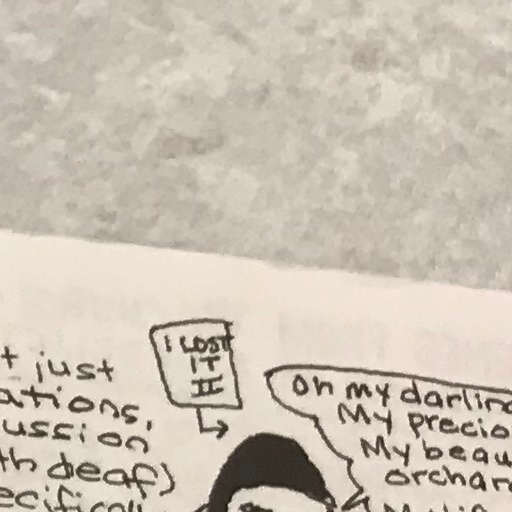 t just
ations,
ussion
th deaf)
ecifically
I LOST
IT
II
Oh my darling
My precio
My beau
orchar